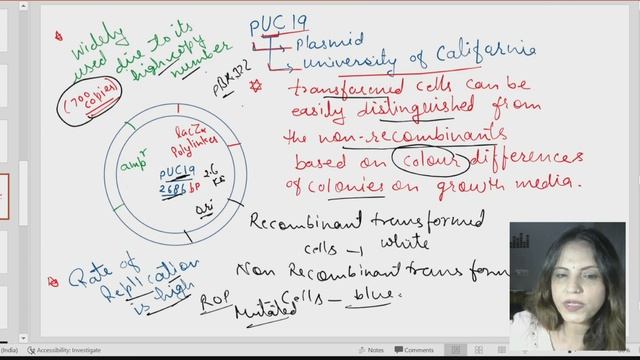 PUC 19
Plasmid
University of California
Widely
used due to its
high copy
number
(700
copies)
PBR322
transformed cells can be
easily distinguished from
the non-recombinants
based on colour differences
of colonies on growth media.
lacZα
Polylinker
ampʳ
PUC19
2686 bp
2.6
Kb
ori
Recombinant transformed
cells → white
Non Recombinant transform
cells - blue.
Rate of
Replication
is high
ROP
Mutated
(India)
Accessibility: Investigate
Notes
Comments